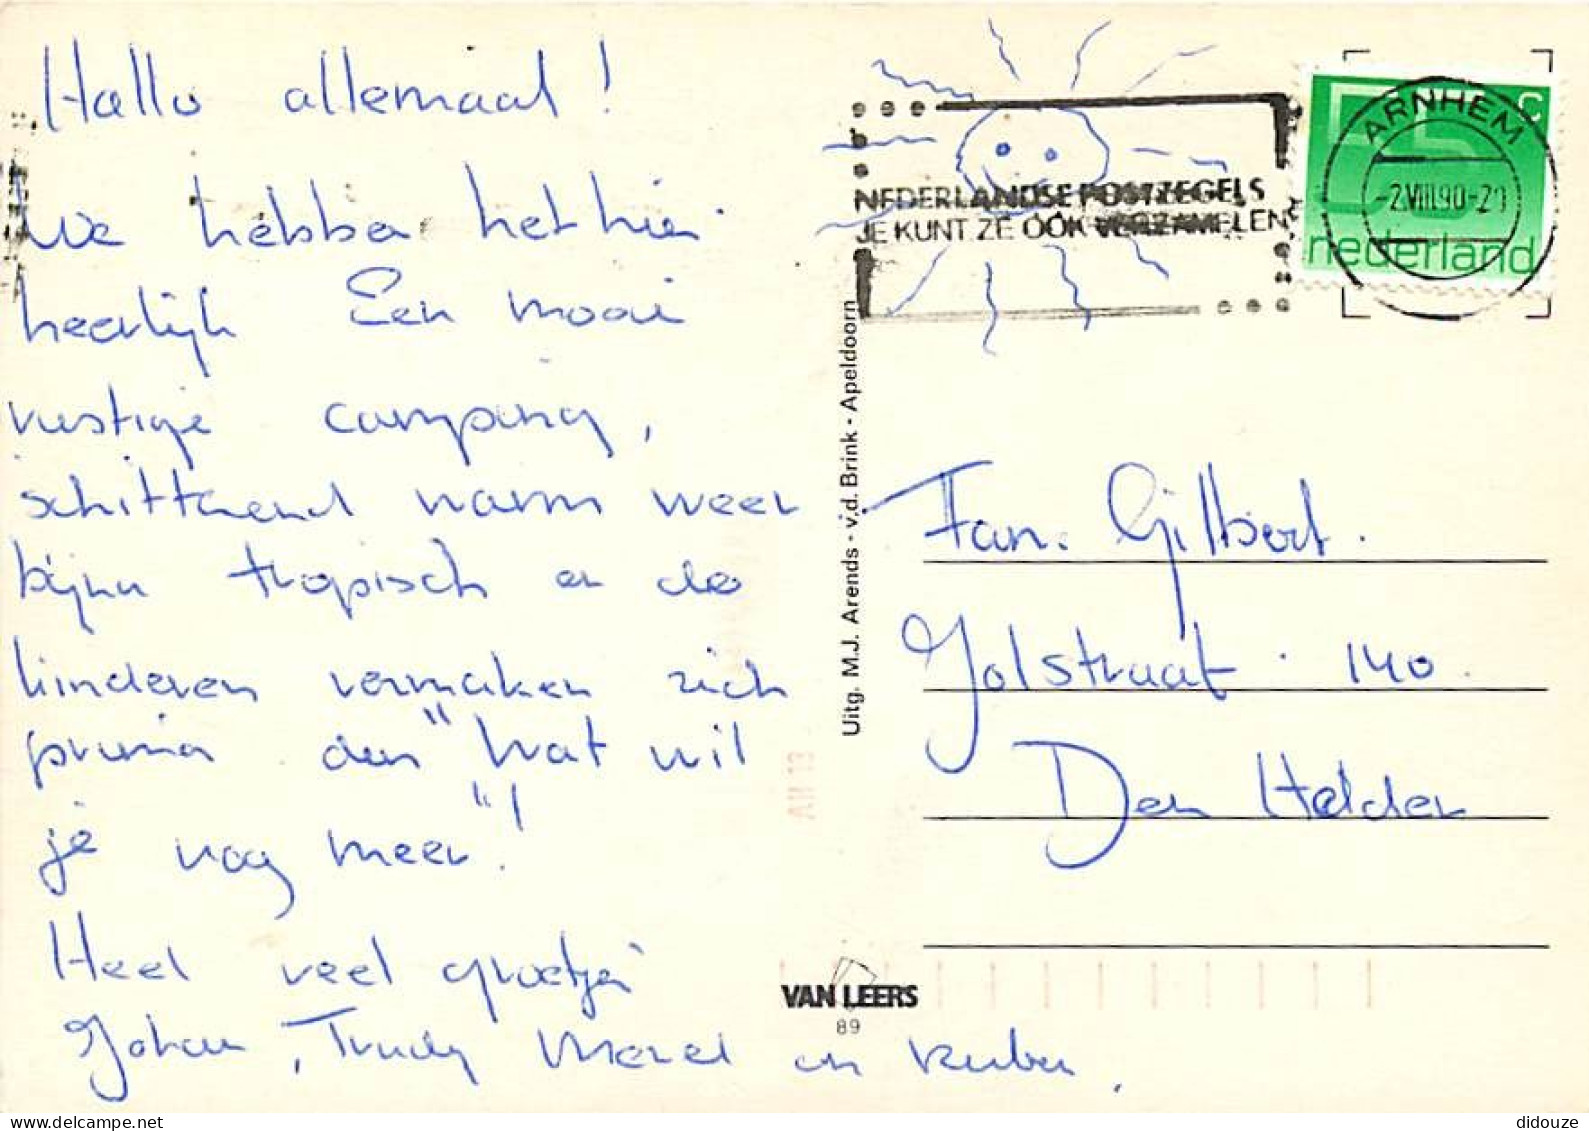 Hallo allemaal!
We hebben het hier
heerlijk Een mooie
rustige camping,
schitterend warm weer
bijna tropisch en de
kinderen vermaken zich
prima dus "wat wil
je nog meer"!
Heel veel groetjes
Johan, Trudy Merel en Ruben.
NEDERLANDSE POSTZEGELS
JE KUNT ZE OOK VERZAMELEN
55 c
nederland
ARNHEM
-2.VIII.90-20
Uitg. M.J. Arends - v.d. Brink - Apeldoorn
Fam. Gilbert.
Jolstraat 140
Den Helder
VAN LEERS
89
delcampe.net
didouze